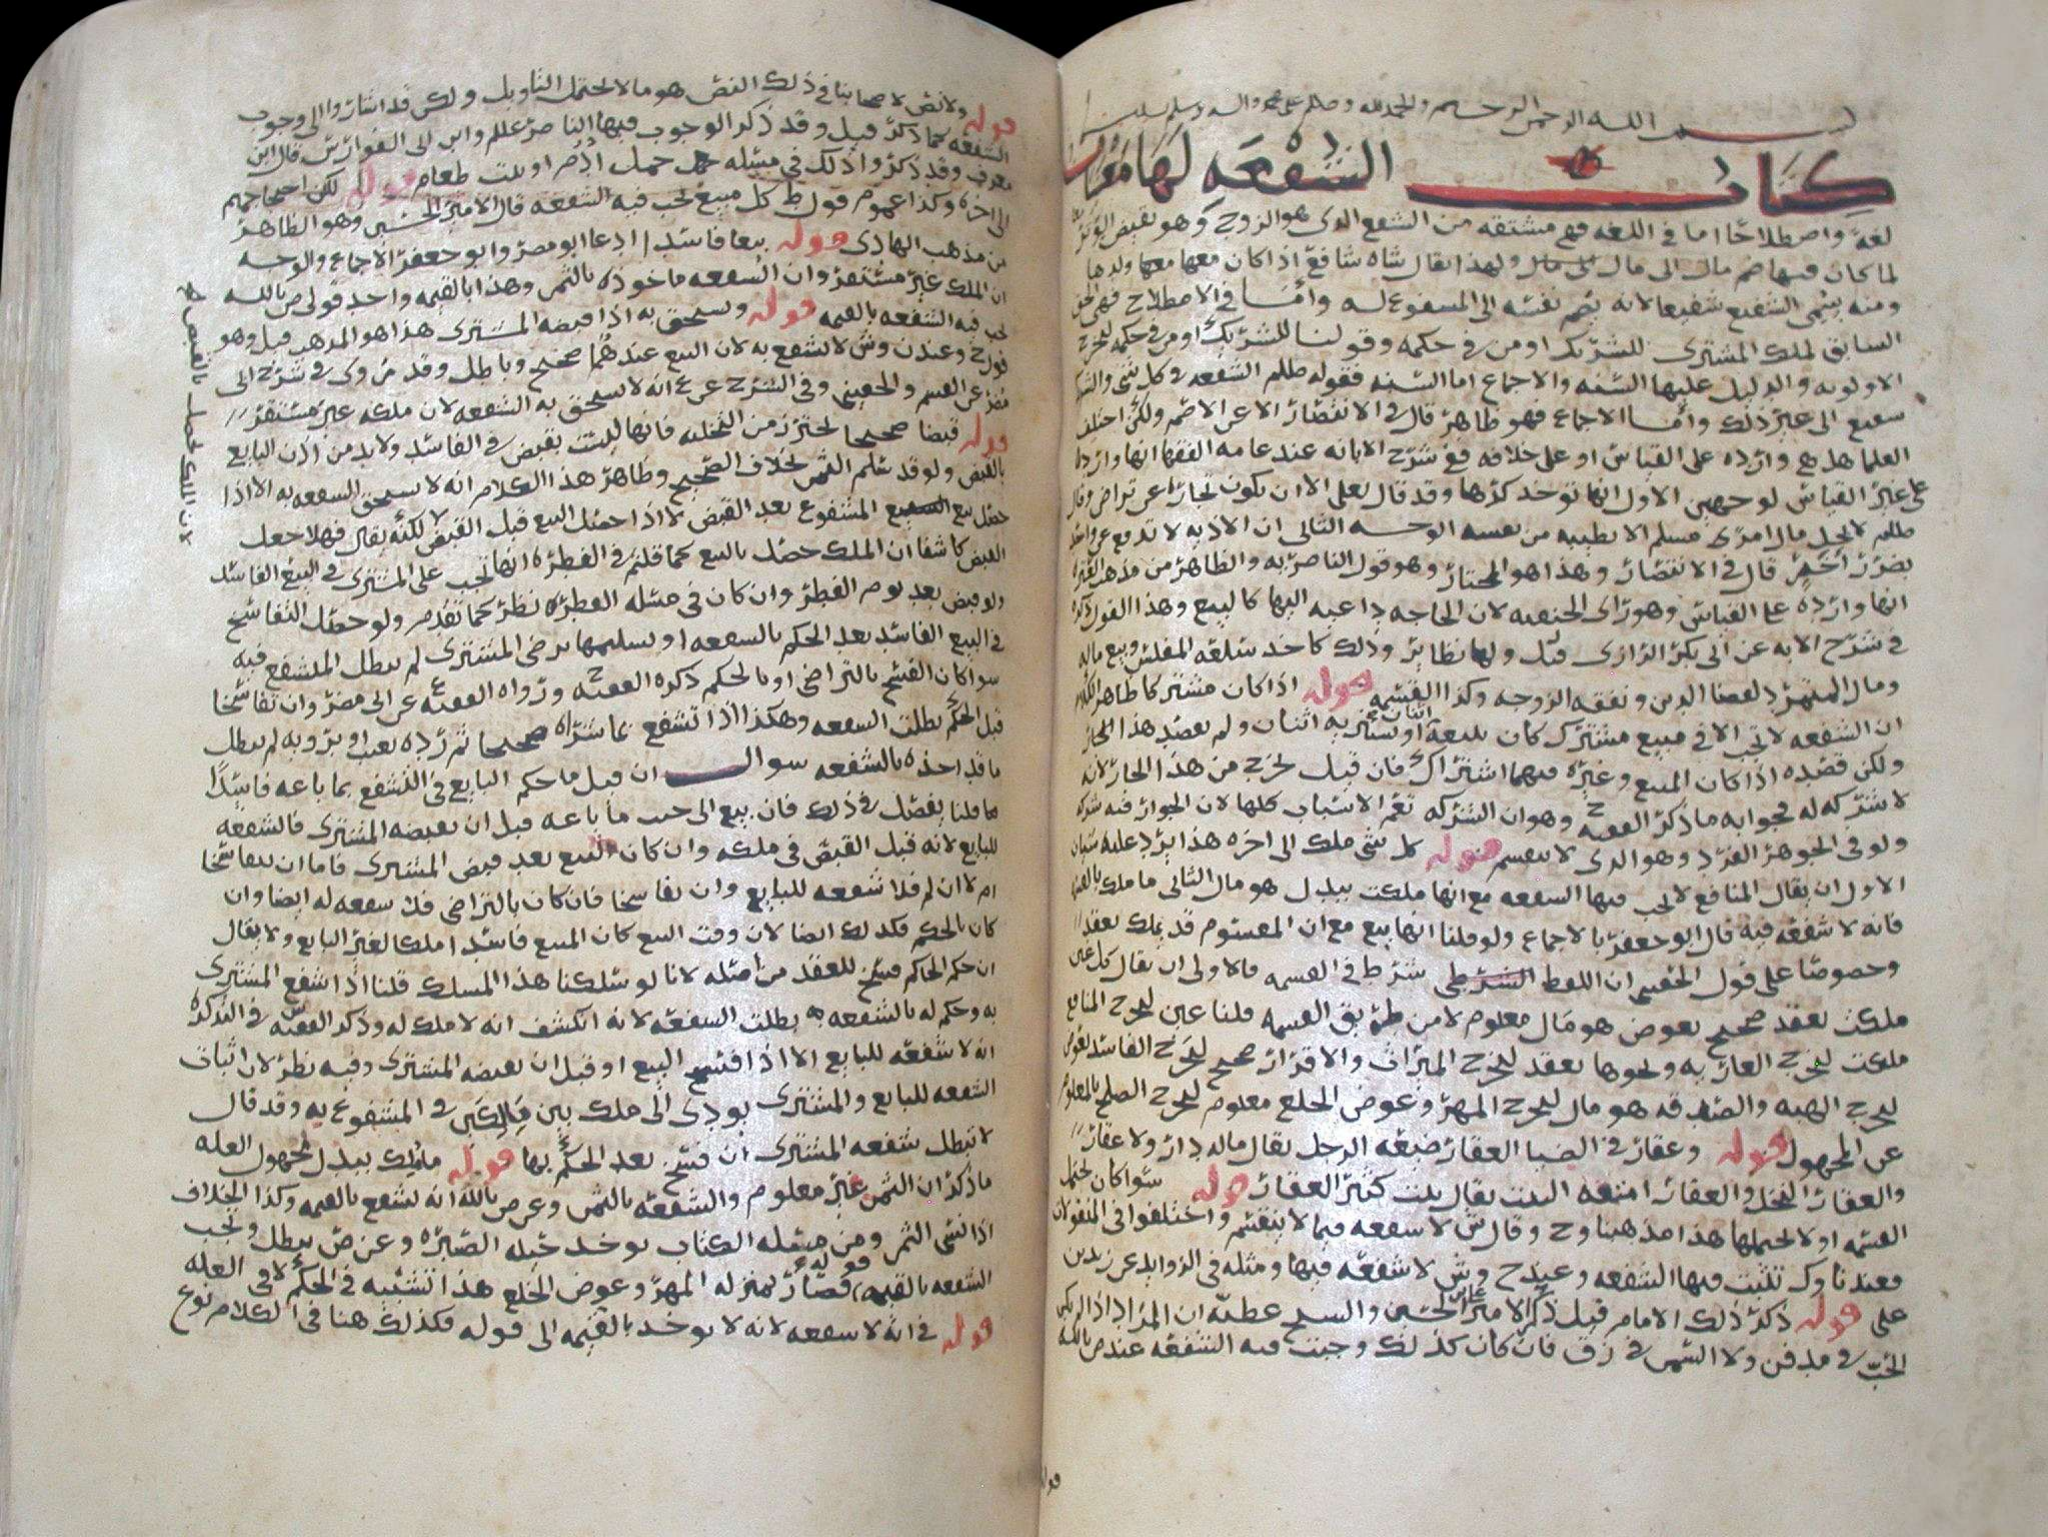 بسم الله الرحمن الرحيم والحمد لله وصلى الله على محمد واله وسلم
كتاب الشفعه لها معنيان
لغة واصطلاحا اما في اللغه فهي مشتقه من الشفع الذي هو الزوج وهو نقيض الوتر
لما كان فيها ضم مال الى مال ولهذا يقال شاه شافع اذا كان معها ولدها
ومنه سمي الشفيع شفيعا لانه يضم نفسه الى المشفوع له واما في الاصطلاح فهي الحق
السابق لملك المشتري للشريك او من في حكمه وقولنا للشريك او من في حكمه لتخرج
الاولويه والدليل عليها السنه والاجماع اما السنه فقوله صللم الشفعه في كل شي والشريك
شفيع الى غير ذلك واما الاجماع فهو ظاهر قال في الانتصار الا عن الاصم ولكن اختلف
العلما هل هي وارده على القياس او على خلافه ففي شرح الابانه عند عامه الفقها انها وارده
على غير القياس لوجهين الاول انها توخذ كرها وقد قال تعلى الا ان تكون تجارة عن تراض وقال
صللم لا يحل مال امرئ مسلم الا بطيبه من نفسه الوجه الثاني ان الاذيه لا تدفع عن واحد
بضرر اخر قال في الانتصار وهذا هو المختار وهو قول الناصريه والظاهر من مذهب
انها وارده على القياس وهو راي الحنفيه لان الحاجه داعيه اليها كالبيع وهذا القول ذكره
في شرح الابانه عن ابي بكر الرازي قيل ولها نظاير وذلك كاخذ سلعه المفلس وبيع ماله
ومال المتمرد لقضا الدين ونفقه الزوجه وكذا القسمه قوله اذا كان مشتركا ظاهر الكلام
ان الشفعه لا تجب الا في مبيع مشترك كان يبيعه اثنان او يشتريه اثنان ولم يقصد هذا
ولكن قصده اذا كان المبيع وغيره فيهما اشتراك فان قيل يخرج من هذا الجار لانه
لا شركه له فجوابه ما ذكر الفقيه ح وهو ان الشركه تعم الاسباب كلها لان الجوار فيه شركه
ولو في الجوهر الفرد وهو الذي لا ينقسم قوله كل شي ملك الى اخره هذا يرد عليه سؤالان
الاول ان يقال المنافع لا تجب فيها الشفعه مع انها ملكت ببدل هو مال الثاني ما ملك بالقسمه
فانه لا شفعه فيه قال ابو جعفر بالاجماع ولو قلنا انها بيع مع ان المقسوم قد يملك بعقد
وخصوصا على قول الحقيني ان اللفظ شرط في القسمه فالاولى ان يقال كل عين
ملكت بعقد صحيح بعوض هو مال معلوم لا من طريق القسمه قلنا عين ليخرج المنافع
ملكت ليخرج العاريه ونحوها بعقد ليخرج الميراث والاقرار صحيح ليخرج الفاسد بعوض
ليخرج الهبه والصدقه هو مال ليخرج المهر وعوض الخلع معلوم ليخرج الصلح بالمعلوم
عن المجهول قوله وعقار في الضيا العقار ضيعه الرجل يقال ماله دار ولا عقار
والعقار النخل والعقار امتعه البيت يقال بيت كثير العقار قوله سوا كان يحتمل
القسمه او لا يحتملها هذا مذهبنا وح وقال ش لا شفعه فيما لا ينقسم واختلفوا في المنقولات
فعندنا وك تثبت فيها الشفعه وعند ح وش لا شفعه فيها ومثله في الزوايد عن زيد بن
علي قوله ذكر ذلك الامام قيل ذكر الامير الحسين والشيخ عطيه ان المراد اذا لم يكن
الحب في مدفن ولا السمن في زق فان كان كذلك وجبت فيه الشفعه عند ص بالله
قوله ولا نص لاصحابنا في ذلك النص هو ما لا يحتمل التاويل ولكن قد اشاروا الى وجوب
الشفعه كما ذكر قيل وقد ذكر الوجوب فيها الناصر عللم وابن ابي الفوارس قال ابن
معرف وقد ذكروا ذلك في مسئله حمل او بيت طعام قوله لكن احتجاجهم
الى اخره وكذا عموم قول ط كل مبيع تجب فيه الشفعه قال الامير الحسين وهو الظاهر
من مذهب الهادي قوله بيعا فاسدا ادعا ابو مضر وابو جعفر الاجماع والوجه
ان الملك غير مستقر وان الشفعه ماخوذه بالثمن وهذا بالقيمه واحد قولي ص بالله
تجب فيه الشفعه بالقيمه قوله ويستحق به اذا قبضه المشتري هذا هو المذهب قيل وهو
قول ح وعند ن وش لا يشفع به لان البيع عندهما صحيح وباطل وقد مروي في شرح ابي
مضر عن القسم والحقيني وفي الشرح عن ع انه لا يستحق به الشفعه لان ملكه غير مستقر
قوله قبضا صحيحا يحترز من التخليه فانها ليست بقبض في الفاسد ولا بد من اذن البايع
بالقبض ولو قد سلم الثمن بخلاف الصحيح وظاهر هذا الكلام انه لا يستحق الشفعه به الا اذا
حصل بيع المشفوع بعد القبض لا اذا حصل البيع قبل القبض لكنه يقال فهلا جعل
القبض كاشفا ان الملك حصل بالبيع كما قلتم في الفطره انها تجب على المشتري في البيع الفاسد
ولو قبض بعد يوم الفطر وان كان في مسئله الفطره نظر كما تقدم ولو حصل التفاسخ
في البيع الفاسد بعد الحكم بالشفعه او تسليمها برضى المشتري لم يبطل الشفع فيه
سوا كان الفسخ بالتراضي او بالحكم ذكره الفقيه ح ورواه الفقيه ع عن ابي مضر وان تفاسخا
قبل الحكم بطلت الشفعه وهكذا اذا تشفع بما شراه صحيحا ثم رده بعيب او برويه لم يبطل
ما قد اخذه بالشفعه سوال ان قيل ما حكم البايع في التشفع بما باعه فاسدا
قلنا يفصل في ذلك فان بيع الى جنب ما باعه قبل ان يقبضه المشتري فالشفعه
للبايع لانه قبل القبض في ملكه وان كان البيع بعد قبض المشتري فاما ان يتفاسخا
ام لا ان لم فلا شفعه للبايع وان تفاسخا فان كان بالتراضي فلا شفعه له ايضا وان
كان بالحكم فكذلك ايضا لان وقت البيع كان المبيع فاسدا ملكا لغير البايع ولا يقال
ان حكم الحاكم فسخ للعقد من اصله لانا لو سلكنا هذا المسلك قلنا اذا شفع المشتري
به وحكم له بالشفعه به بطلت الشفعه لانه انكشف انه لا ملك له وذكر الفقيه س في التذكره
انه لا شفعه للبايع الا اذا فسخ البيع او قبل ان يقبضه المشتري وفيه نظر لان اثبات
الشفعه للبايع والمشتري يودي الى ملك بين مالكين في المشفوع به وقد قال
لا تبطل شفعه المشتري ان فسخ بعد الحكم بها قوله ملك ببدل مجهول العله
ما ذكر ان الثمن غير معلوم والشفعه بالثمن وعن ص بالله انه يشفع بالقيمه وكذا الخلاف
اذا نسي الثمن ومن مسئله الكتاب يوخذ حيله الصبره وعن ص يبطل وتجب
الشفعه بالقيمه قوله فصار بمنزله المهر وعوض الخلع هذا تشبيه في الحكم لا في العله
قوله في انه لا شفعه لانه لا يوخذ بالقيمه الى قوله فكذلك هنا في الكلام نوع
لان الملك يحصل بالقبض